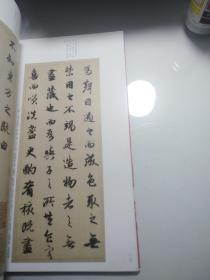 為聲目遇之而成色取之無
禁用之不竭是造物者之無
盡藏也而吾與子之所共食客
喜而笑洗盞更酌肴核既盡
不知東方之既白